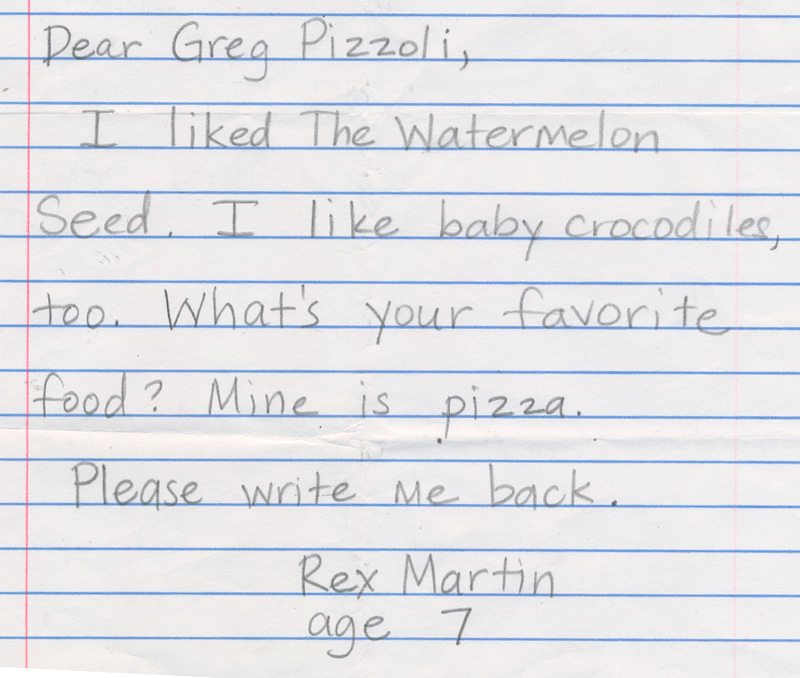 Dear Greg Pizzoli,
I liked The Watermelon
Seed. I like baby crocodiles,
too. What's your favorite
food? Mine is pizza.
Please write me back.
Rex Martin
age 7